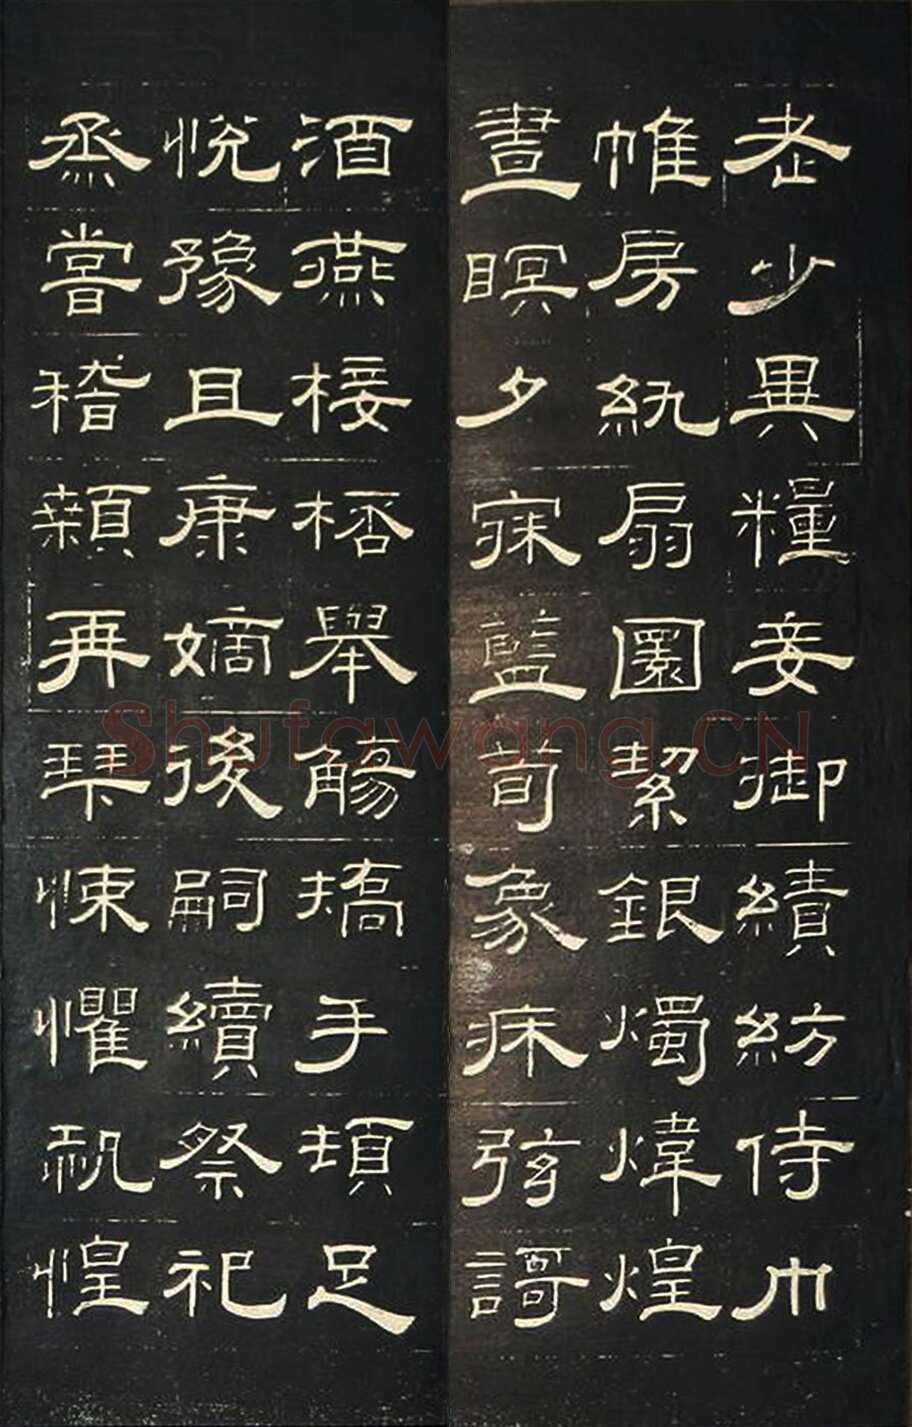 老少異糧妾御績紡侍巾
帷房紈扇圜絜銀燭煒煌
晝瞑夕寐藍荀象床弦謌
酒燕接桮舉觴矯手頓足
悅豫且康嫡後嗣續祭祀
烝嘗稽顙再拜悚懼恐惶
Shufawang.CN